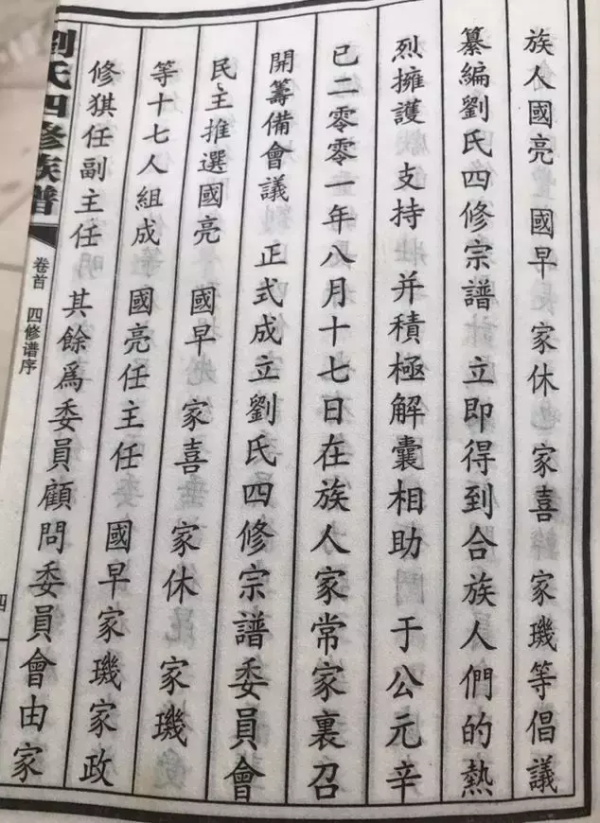 族人國亮 國早 家休 家喜 家璣等倡議
纂編劉氏四修宗譜 立即得到合族人們的熱
烈擁護 支持并積極解囊相助 于公元辛
已二零零一年八月十七日在族人家常家裏召
開籌備會議 正式成立劉氏四修宗譜委員會
民主推選國亮 國早 家喜 家休 家璣
等十七人組成 國亮任主任 國早家璣家政
修猉任副主任 其餘爲委員顧問委員會由家
劉氏四修族譜 卷首 四修谱序
四